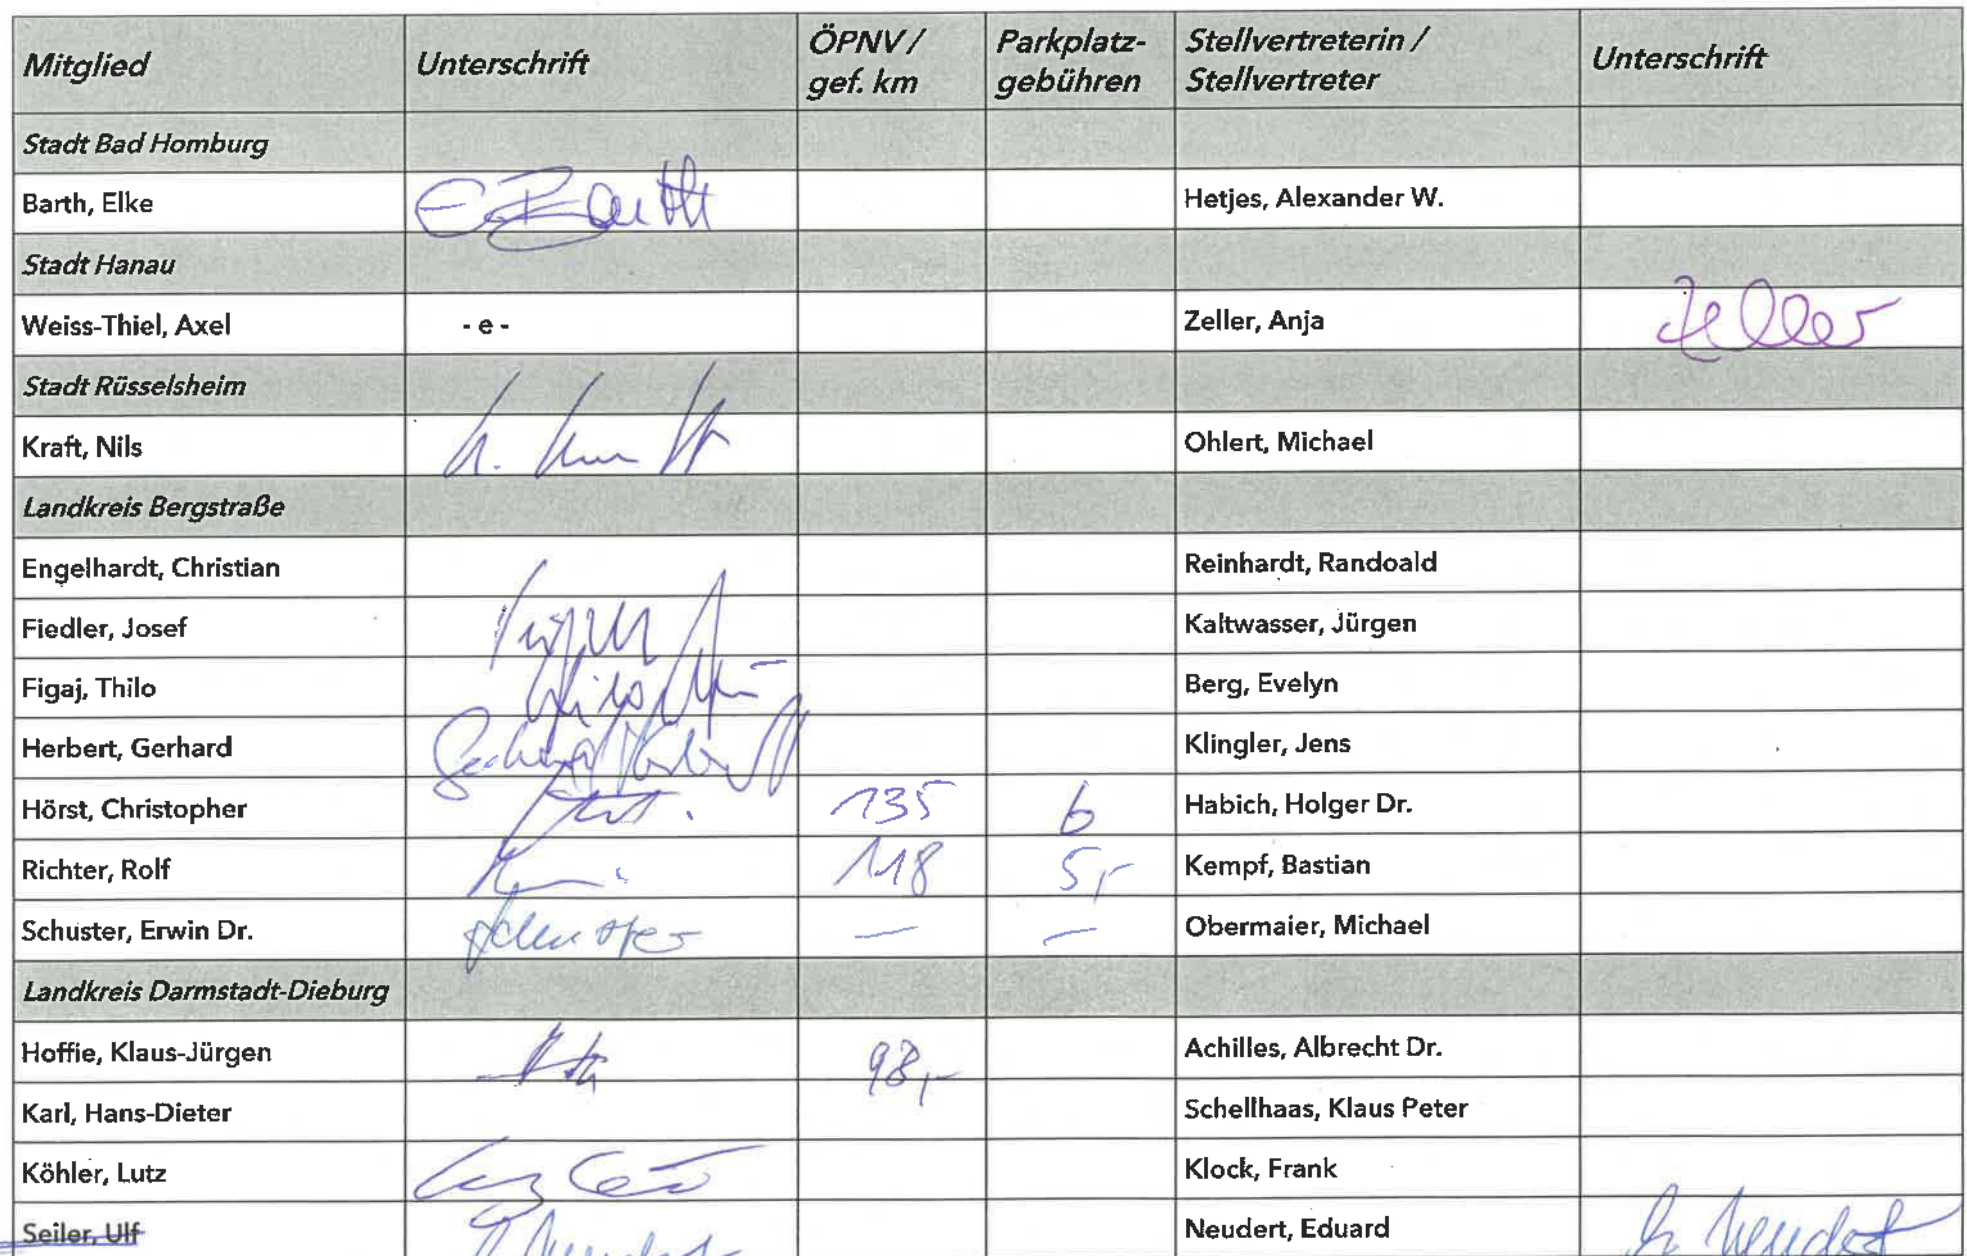 Mitglied Unterschrift ÖPNV / gef. km Parkplatz-gebühren Stellvertreterin / Stellvertreter Unterschrift
Stadt Bad Homburg
Barth, Elke E. Barth Hetjes, Alexander W.
Stadt Hanau
Weiss-Thiel, Axel - e - Zeller, Anja Zeller
Stadt Rüsselsheim
Kraft, Nils N. Kraft Ohlert, Michael
Landkreis Bergstraße
Engelhardt, Christian Reinhardt, Randoald
Fiedler, Josef Kaltwasser, Jürgen
Figaj, Thilo Thilo Berg, Evelyn
Herbert, Gerhard Gerhard Herbert Klingler, Jens
Hörst, Christopher 135 6 Habich, Holger Dr.
Richter, Rolf 118 5,- Kempf, Bastian
Schuster, Erwin Dr. Schuster — — Obermaier, Michael
Landkreis Darmstadt-Dieburg
Hoffie, Klaus-Jürgen 98,- Achilles, Albrecht Dr.
Karl, Hans-Dieter Schellhaas, Klaus Peter
Köhler, Lutz Klock, Frank
Seiler, Ulf Neudert Neudert, Eduard Neudert